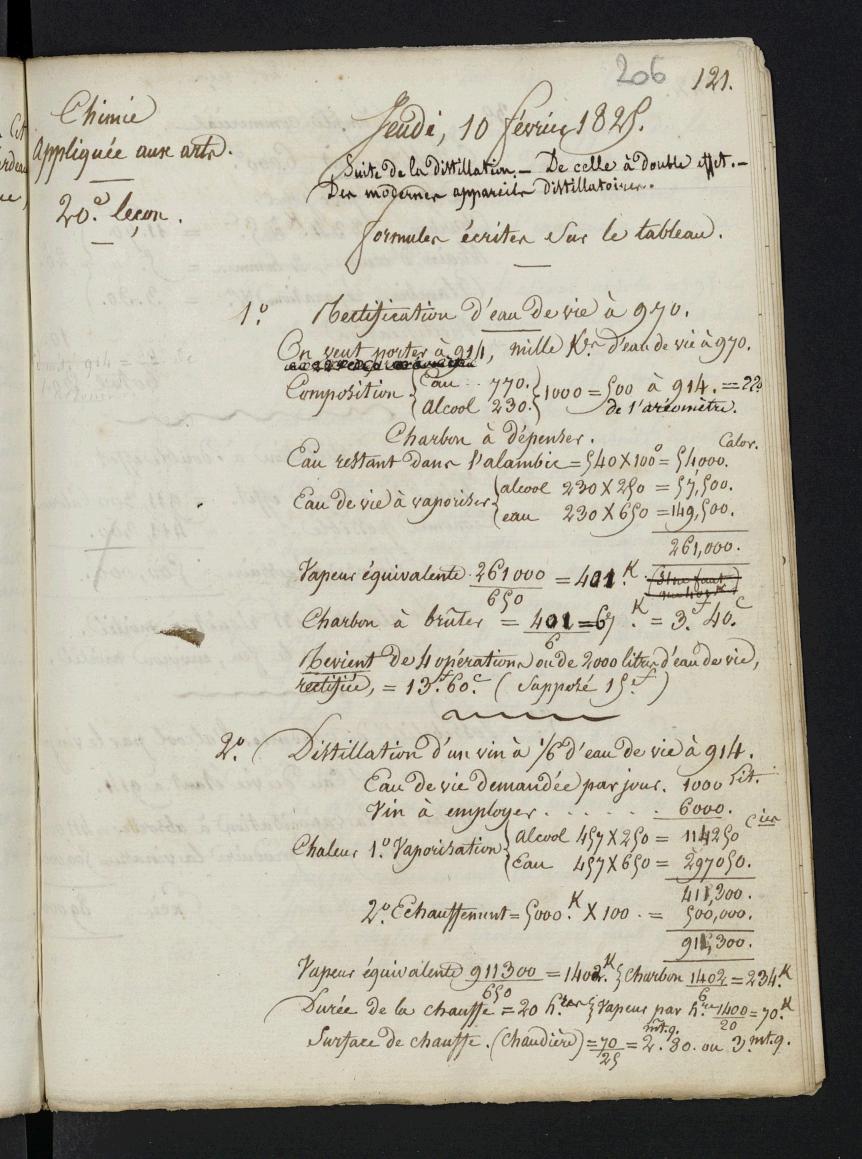 206 121.
Chimie
Appliquée aux arts.
20.e leçon.
Jeudi, 10 février 1825.
Suite de la distillation. — De celle à double effet. —
Des modernes appareils distillatoires.
formules écrites sur le tableau.
1.o Rectification d'eau de vie à 970.
On veut porter à 914, mille K.es d'eau de vie à 970.
Composition { Eau .. 770. Alcool 230. } 1000 = 500 à 914. = 22o
de l'aréomètre.
Charbon à dépenser.
Calor.
Eau restant dans l'alambic = 540 X 100o = 54,000.
Eau de vie à vaporiser { alcool 230 X 250 = 57,500.
eau 230 X 650 = 149,500.
261,000.
Vapeur équivalente . 261000/650 = 401.K
Charbon à brûler = 401/6 = 67.K = 3.f 40.c
Revient de 4 opérations ou de 2000 litres d'eau de vie,
rectifiée, = 13.f 60.c ( supposé 15.f )
2.o Distillation d'un vin à 1/6 d'eau de vie à 914.
Eau de vie demandée par jour. 1000 Lit.
Vin à employer . . . . . . 6000.
Chaleur 1.o Vaporisation { Alcool 457 X 250 = 114250
Eau 457 X 650 = 297050.
411,300.
2.o Echauffement = 5000.K X 100 . = 500,000.
911,300.
Vapeur équivalente 911300/650 = 1402.K } Charbon 1402/6 = 234.K
Durée de la chauffe = 20 h.res } Vapeur par h.re 1400/20 = 70.K
Surface de chauffe . (Chaudière) = 70/25 = 2.mt.q. 80. ou 3.mt.q.